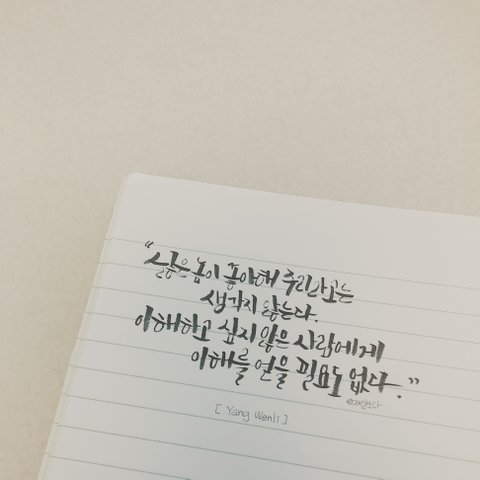 “싫은 놈이 좋아해 주리라고는
생각지 않는다.
이해하고 싶지 않은 사람에게
이해를 얻을 필요도 없다.”
[ Yang Wenli ]